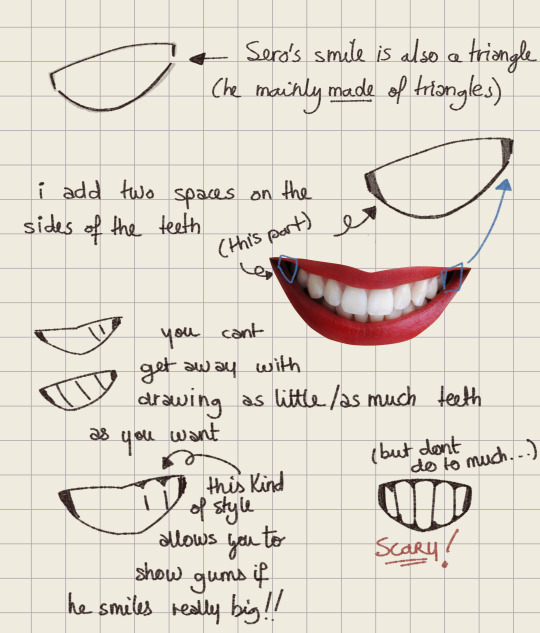 Sero's smile is also a triangle
(he mainly made of triangles)
i add two spaces on the
sides of the teeth
(this part)
you cant
get away with
drawing as little/as much teeth
as you want
this kind
of style
allows you to
show gums if
he smiles really big!!
(but dont
do to much...)
SCARY!